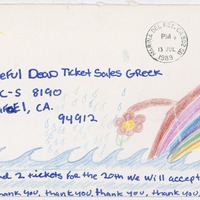 MARINA DEL REY, CA 902
PM
13 JUL
1989
eful Dead Ticket Sales Greek
C-S 8190
fael, CA.
94912
nd 2 tickets for the 20th We will accept
thank you, thank you, thank you, thank you,